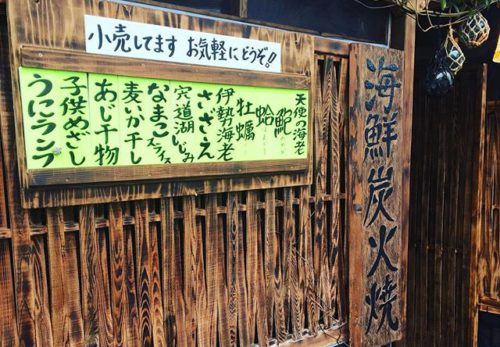 小売してます お気軽にどうぞ!!
天使の海老
蛤
牡蠣
伊勢海老
さざえ
宍道湖しじみ
なまこスライス
麦いか干し
あじ干物
子供めざし
うにランプ
海鮮炭火焼